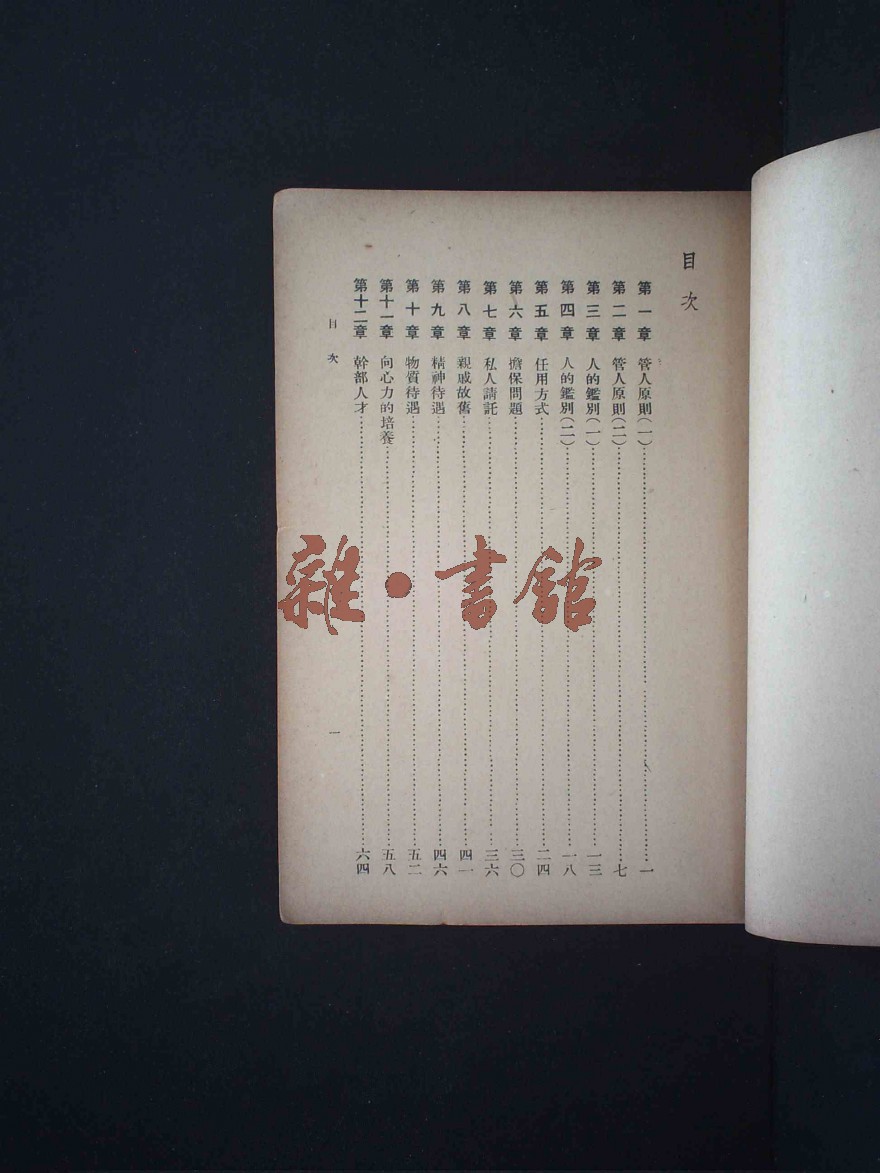 目次
第一章 管人原則(一)……一
第二章 管人原則(二)……七
第三章 人的鑑別(一)……一三
第四章 人的鑑別(二)……一八
第五章 任用方式……二四
第六章 擔保問題……三〇
第七章 私人請託……三六
第八章 親戚故舊……四一
第九章 精神待遇……四六
第十章 物質待遇……五二
第十一章 向心力的培養……五八
第十二章 幹部人才……六四
目次
一
雜•書館